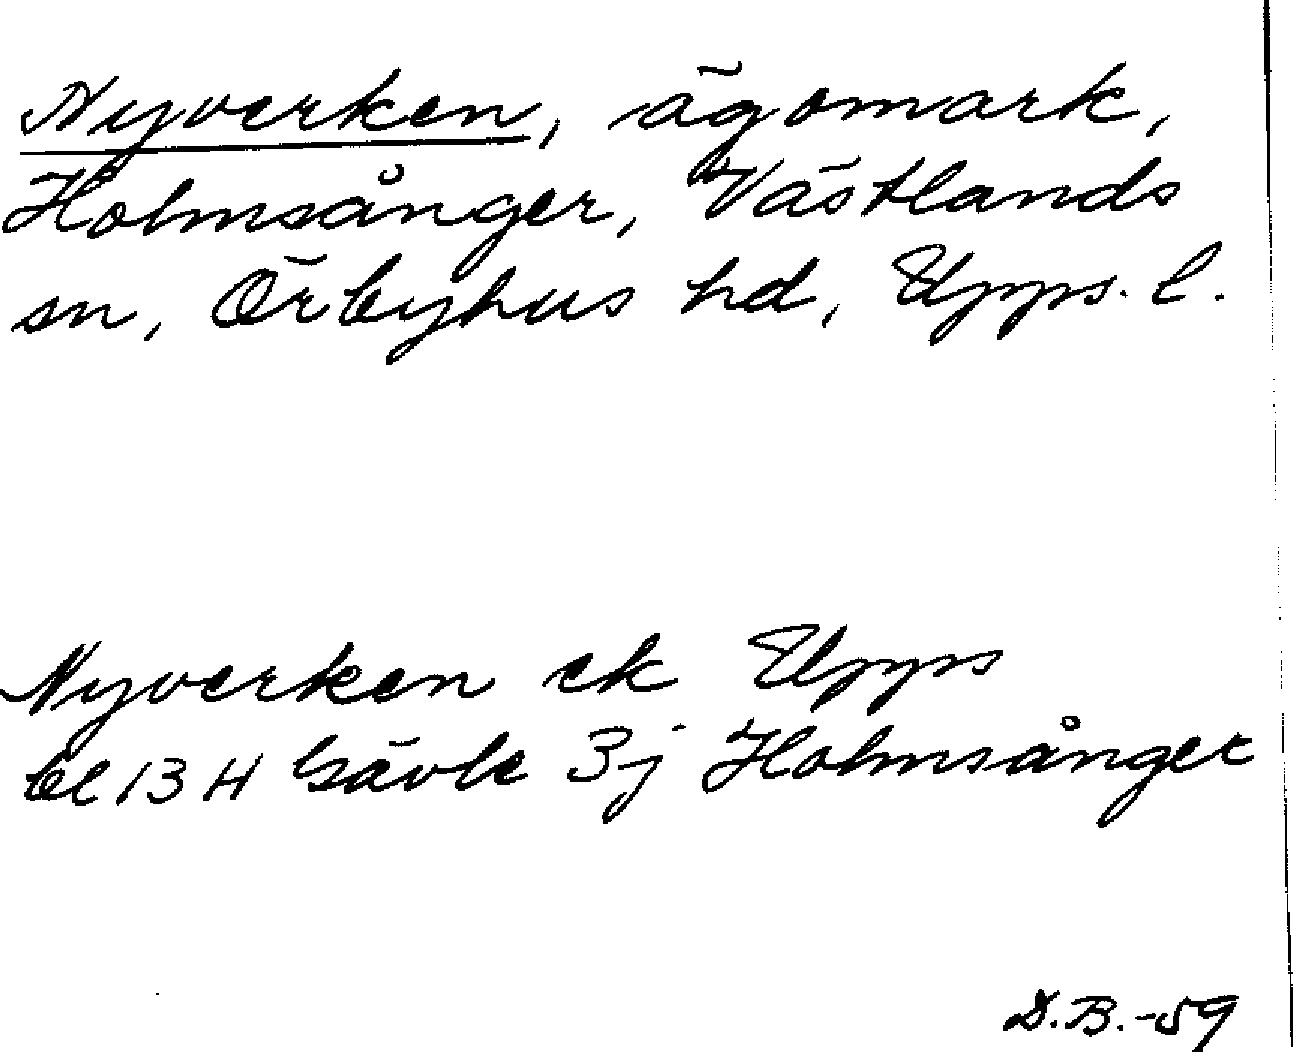 Nyverken, ägomark,
Holmsånger, Västlands
sn, Örbyhus hd, Upps. l.
Nyverken ek Upps
bl 13 H Gävle 3j Holmsånger
D.B.-59